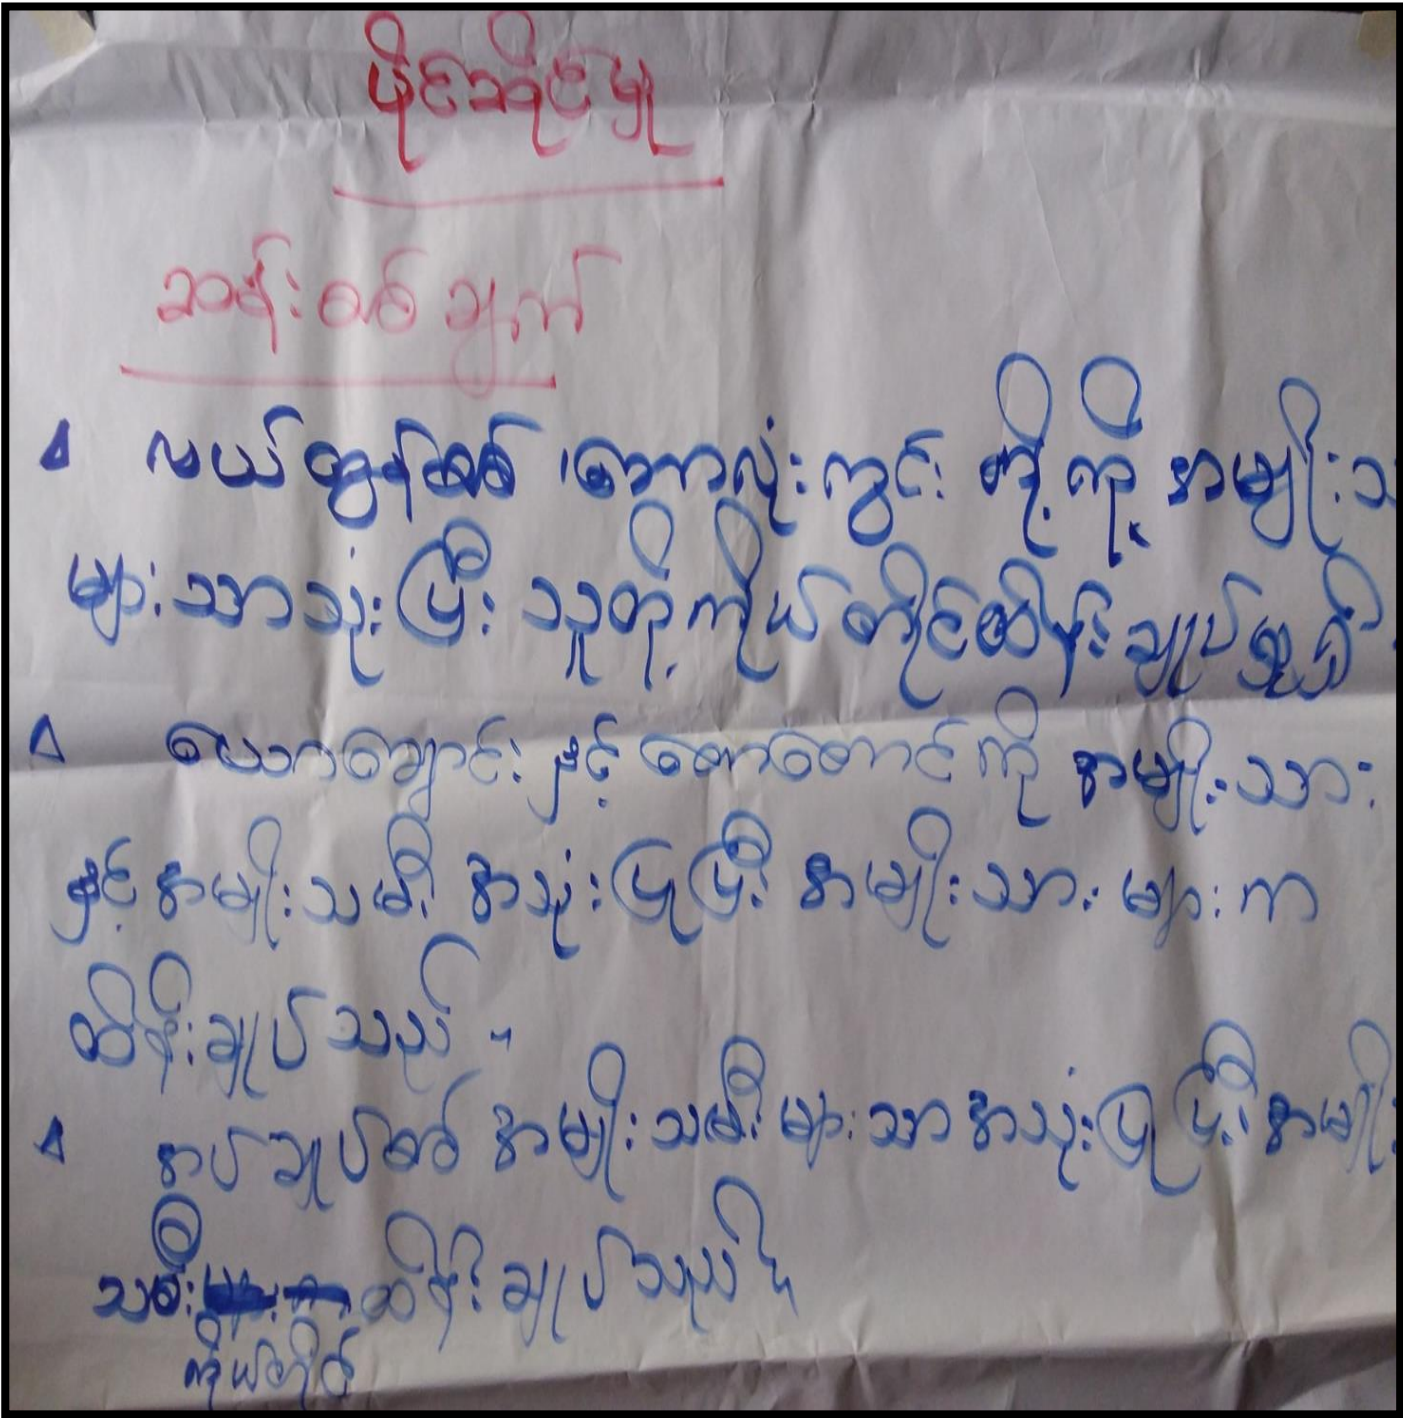 ပိုင်ဆိုင်မှု
ဆန်းစစ်ချက်
လယ်ထွန်စက် ၊ ဘောလုံးကွင်း တို့ကို အမျိုးသ
များသာသုံးပြီး သူတို့ကိုယ်တိုင်ထိန်းချုပ်မှုရှိ
ယောကချောင်း နှင့် တောတောင်ကို အမျိုးသား
နှင့် အမျိုးသမီး အသုံးပြုပြီး အမျိုးသား များက
ထိန်းချုပ်သည် ။
အပ်ချုပ်စက် အမျိုးသမီးများသာ အသုံးပြုပြီး အမျိုး
သမီး ထိန်းချုပ်သည် ။
ကိုယ်တိုင်